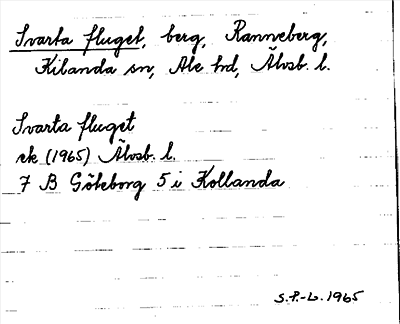 Svarta fluget, berg, Ranneberg,
Kilanda sn, Ale hd, Älvsb. l.
Svarta fluget
ek (1965) Älvsb. l.
7 B Göteborg 5 i Kollanda
S.P.-L. 1965